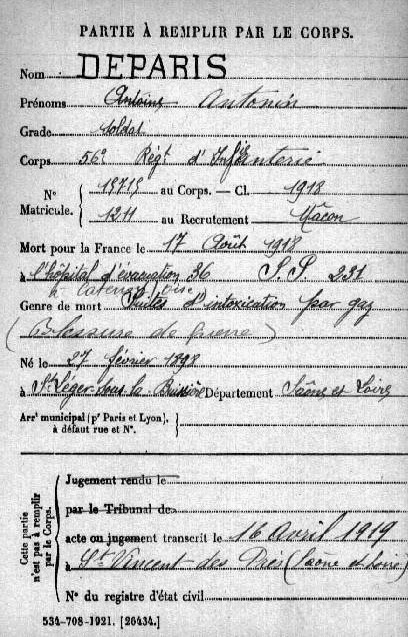 PARTIE À REMPLIR PAR LE CORPS.
Nom DEPARIS
Prénoms Antoine Antonin
Grade soldat
Corps 56e Régt d'Infanterie
N° Matricule. { 13713 au Corps. — Cl. 1918
1211 au Recrutement Mâcon
Mort pour la France le 17 Août 1918
à l'hôpital d'évacuation 36 S.P. 231
à Catenoy Oise
Genre de mort Suites d'intoxication par gaz
(Blessure de guerre)
Né le 27 février 1898
à St Léger-sous-la-Bussière Département Saône et Loire
Arrt municipal (pr Paris et Lyon), à défaut rue et N°. {
Cette partie n'est pas à remplir par le Corps. { Jugement rendu le
par le Tribunal de
acte ou jugement transcrit le 16 Avril 1919
à St Vincent-des-Prés (Saône et Loire)
N° du registre d'état civil
534-708-1921. [26434.]